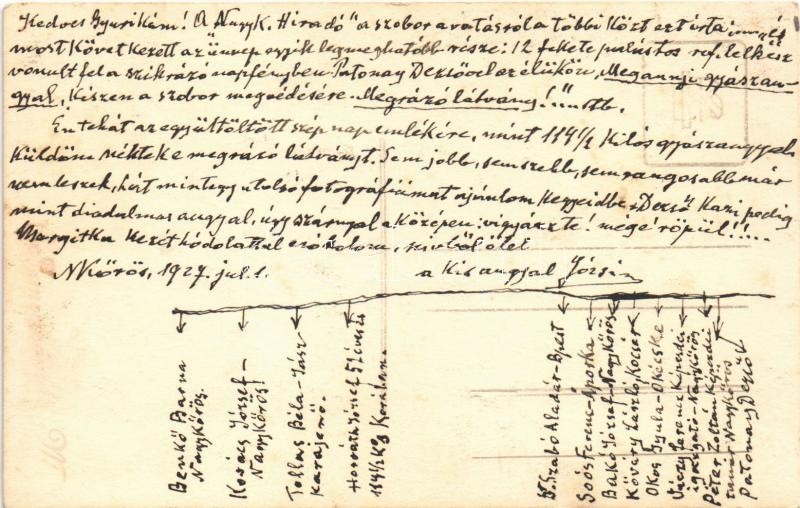 Kedves Gyurikám! A Nagyk. Hiradó "a szoboravatásról a többi közt ezt írta:
most következett az ünnep egyik legmeghatóbb része: 12 fekete palástos ref. lelkész
vonult fel a szikrázó napfényben Patonay Dezsővel az élükön, Megannyi gyászan-
gyal, készen a szobor megvédésére. Megrázó látvány! "... stb.
Én tehát az együtt töltött szép nap emlékére, mint 154 1/2 kilós gyászangyal
küldöm néktek e megrázó látványt. Sem jobb, sem szebb, sem rangosabb már
nem leszek, hát mintegy utolsó fotográfiámat ajánlom kegyeidbe. Dezső
mint diadalmas angyal, úgy szárnyal a középen: vigyázzte! mégé röpül!!...
Margitka kezét hódolattal csókolom, szivből ölel
NKőrös, 1927. jul. 1. a kis angyal Józsi
Benkő Barna
Nagykőrös.
Kovács József-
Nagykőrös!
Tollas Béla-Jász-
karajenő.
Horváth József 51 éves és
154 1/2 kg Korában.
Szabó Aladár-Bpest
Soós Ferenc-Aposka
Bakó József-Nagykőrös
Kőváry László, Kocsér
Okos Gyula-Okécske
Váczy Ferenc Képezdei
igazgató-Nagykőrös
Péter Zoltán Képezdei
tanár Nagykőrös
Patonay Dezső